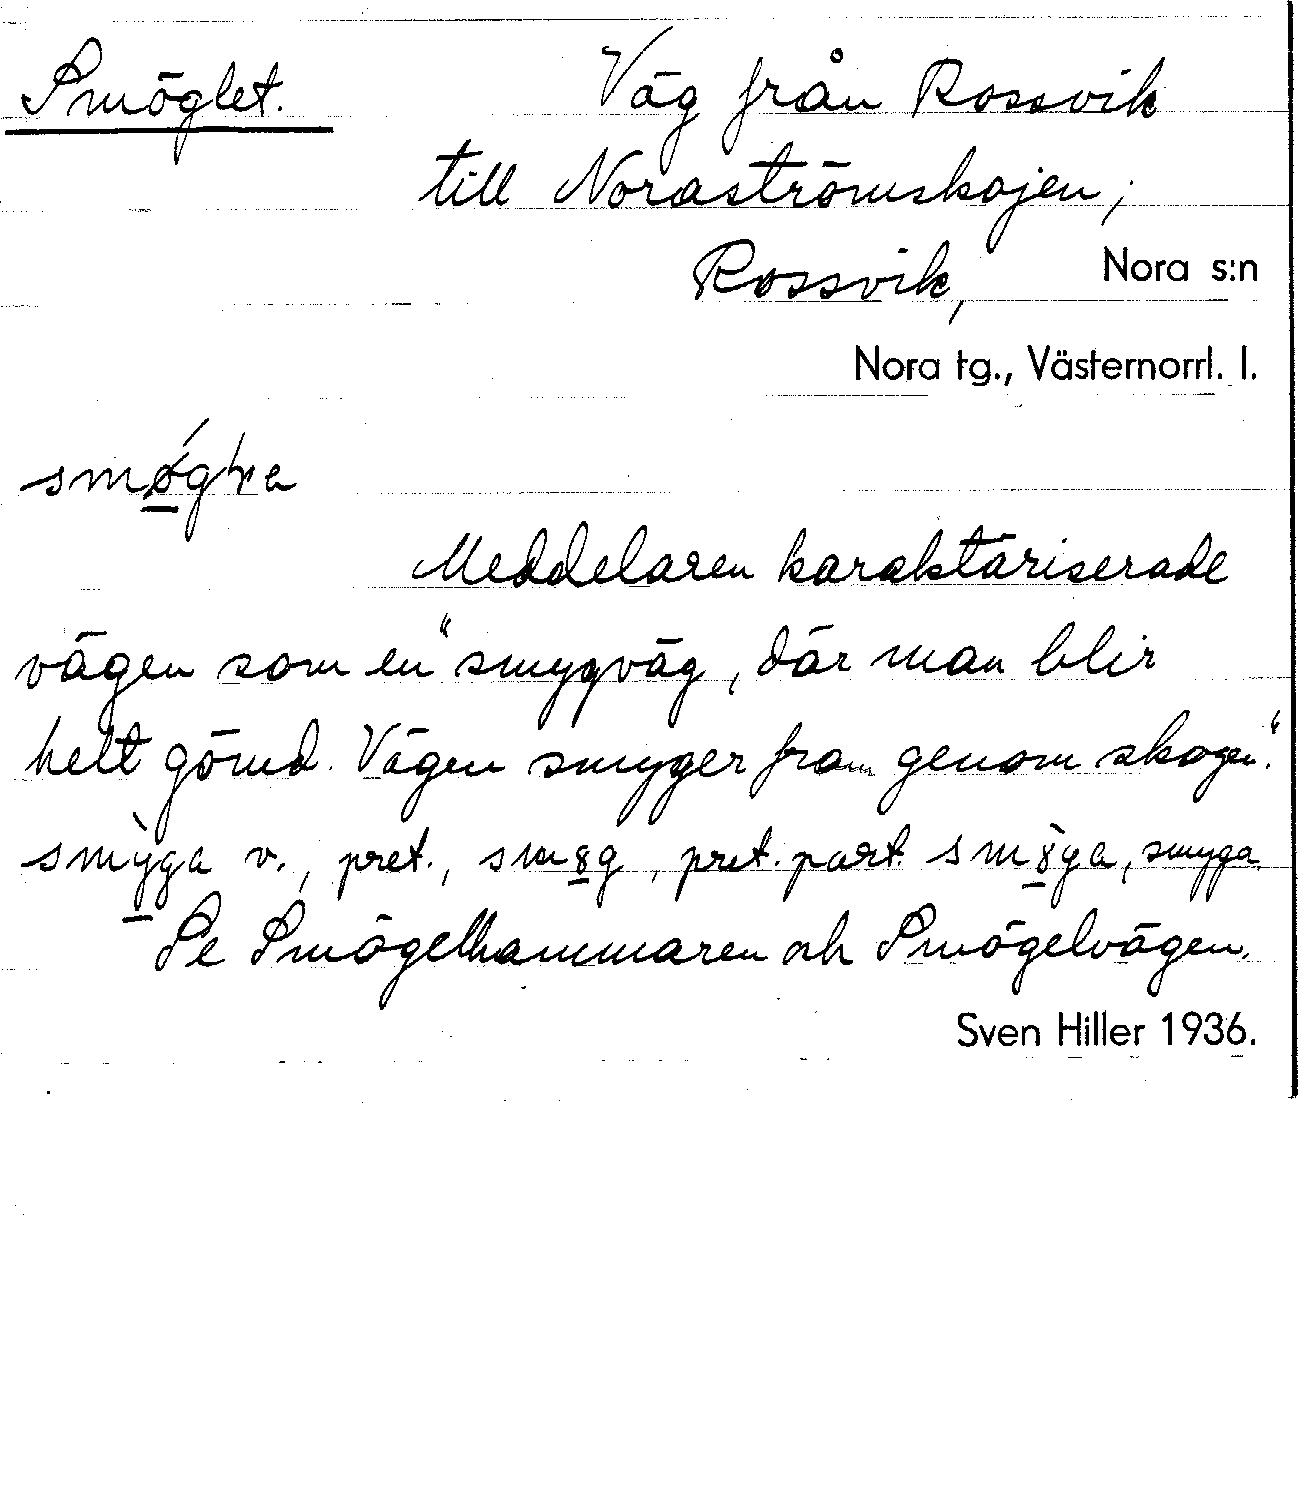 Smöglet. Väg från Rossvik
till Noraströmskajen;
Rossvik, Nora s:n
Nora tg., Västernorrl. l.
Meddelaren karaktäriserade
vägen som en "smygväg, där man blir
helt gömd. Vägen smyger fram genom skogen".
smỳga v., pret., smøg, pret. part. smøga, smyga.
Se Smögelhammaren och Smögelvägen.
Sven Hiller 1936.